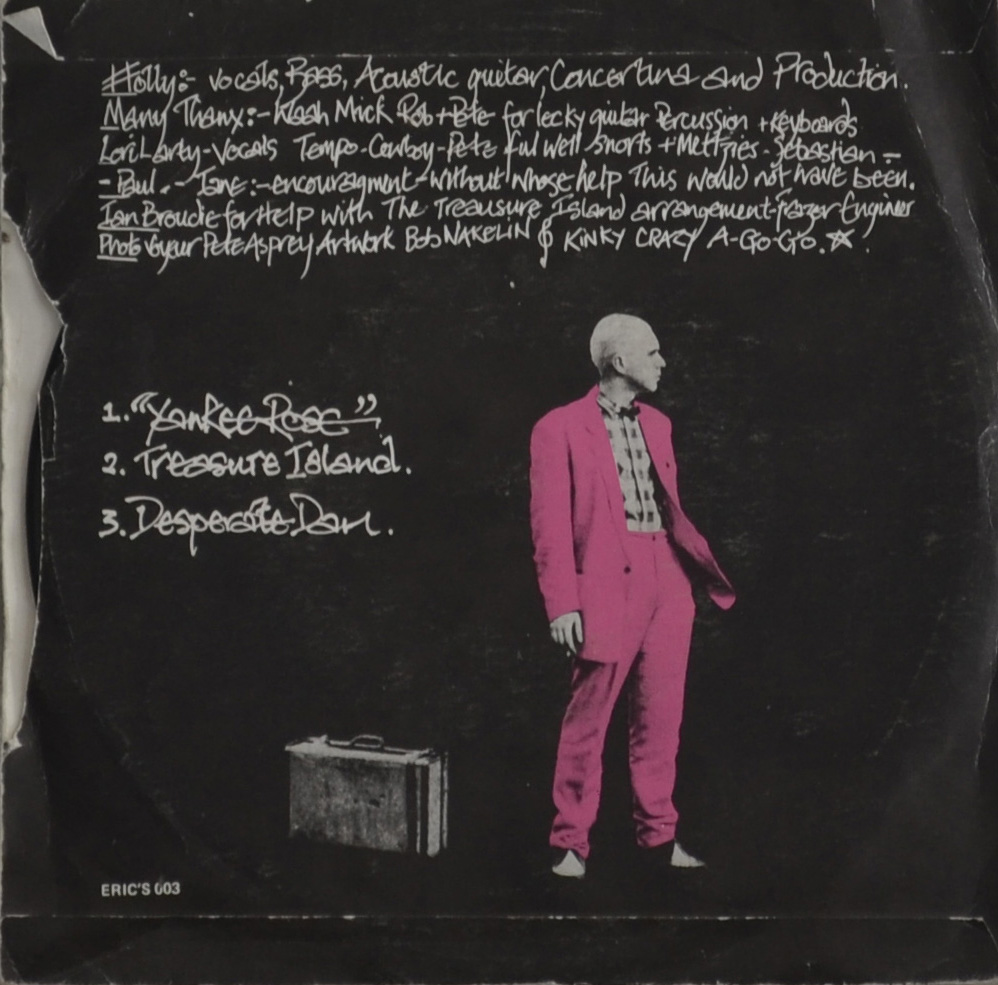 Holly:- Vocals, Bass, Acoustic guitar, Concertina and Production.
Many Thanx:- Mick Rob + Pete for lecky guitar Percussion + Keyboards
Lori Larty - Vocals Tempo - Cowboy - Pete ful well Snorts + - Sebastian -
- Paul - Jane:- encouragment - without whose help This would not have been.
Ian Broudie for Help with The Treausure Island arrangement - frazer Engineer
Photo Pete Asprey Artwork Bob NAKELIN & KINKY CRAZY A-GO-GO.
1. "Yankee Rose"
2. Treasure Island.
3. Desperate Dan.
ERIC'S 003